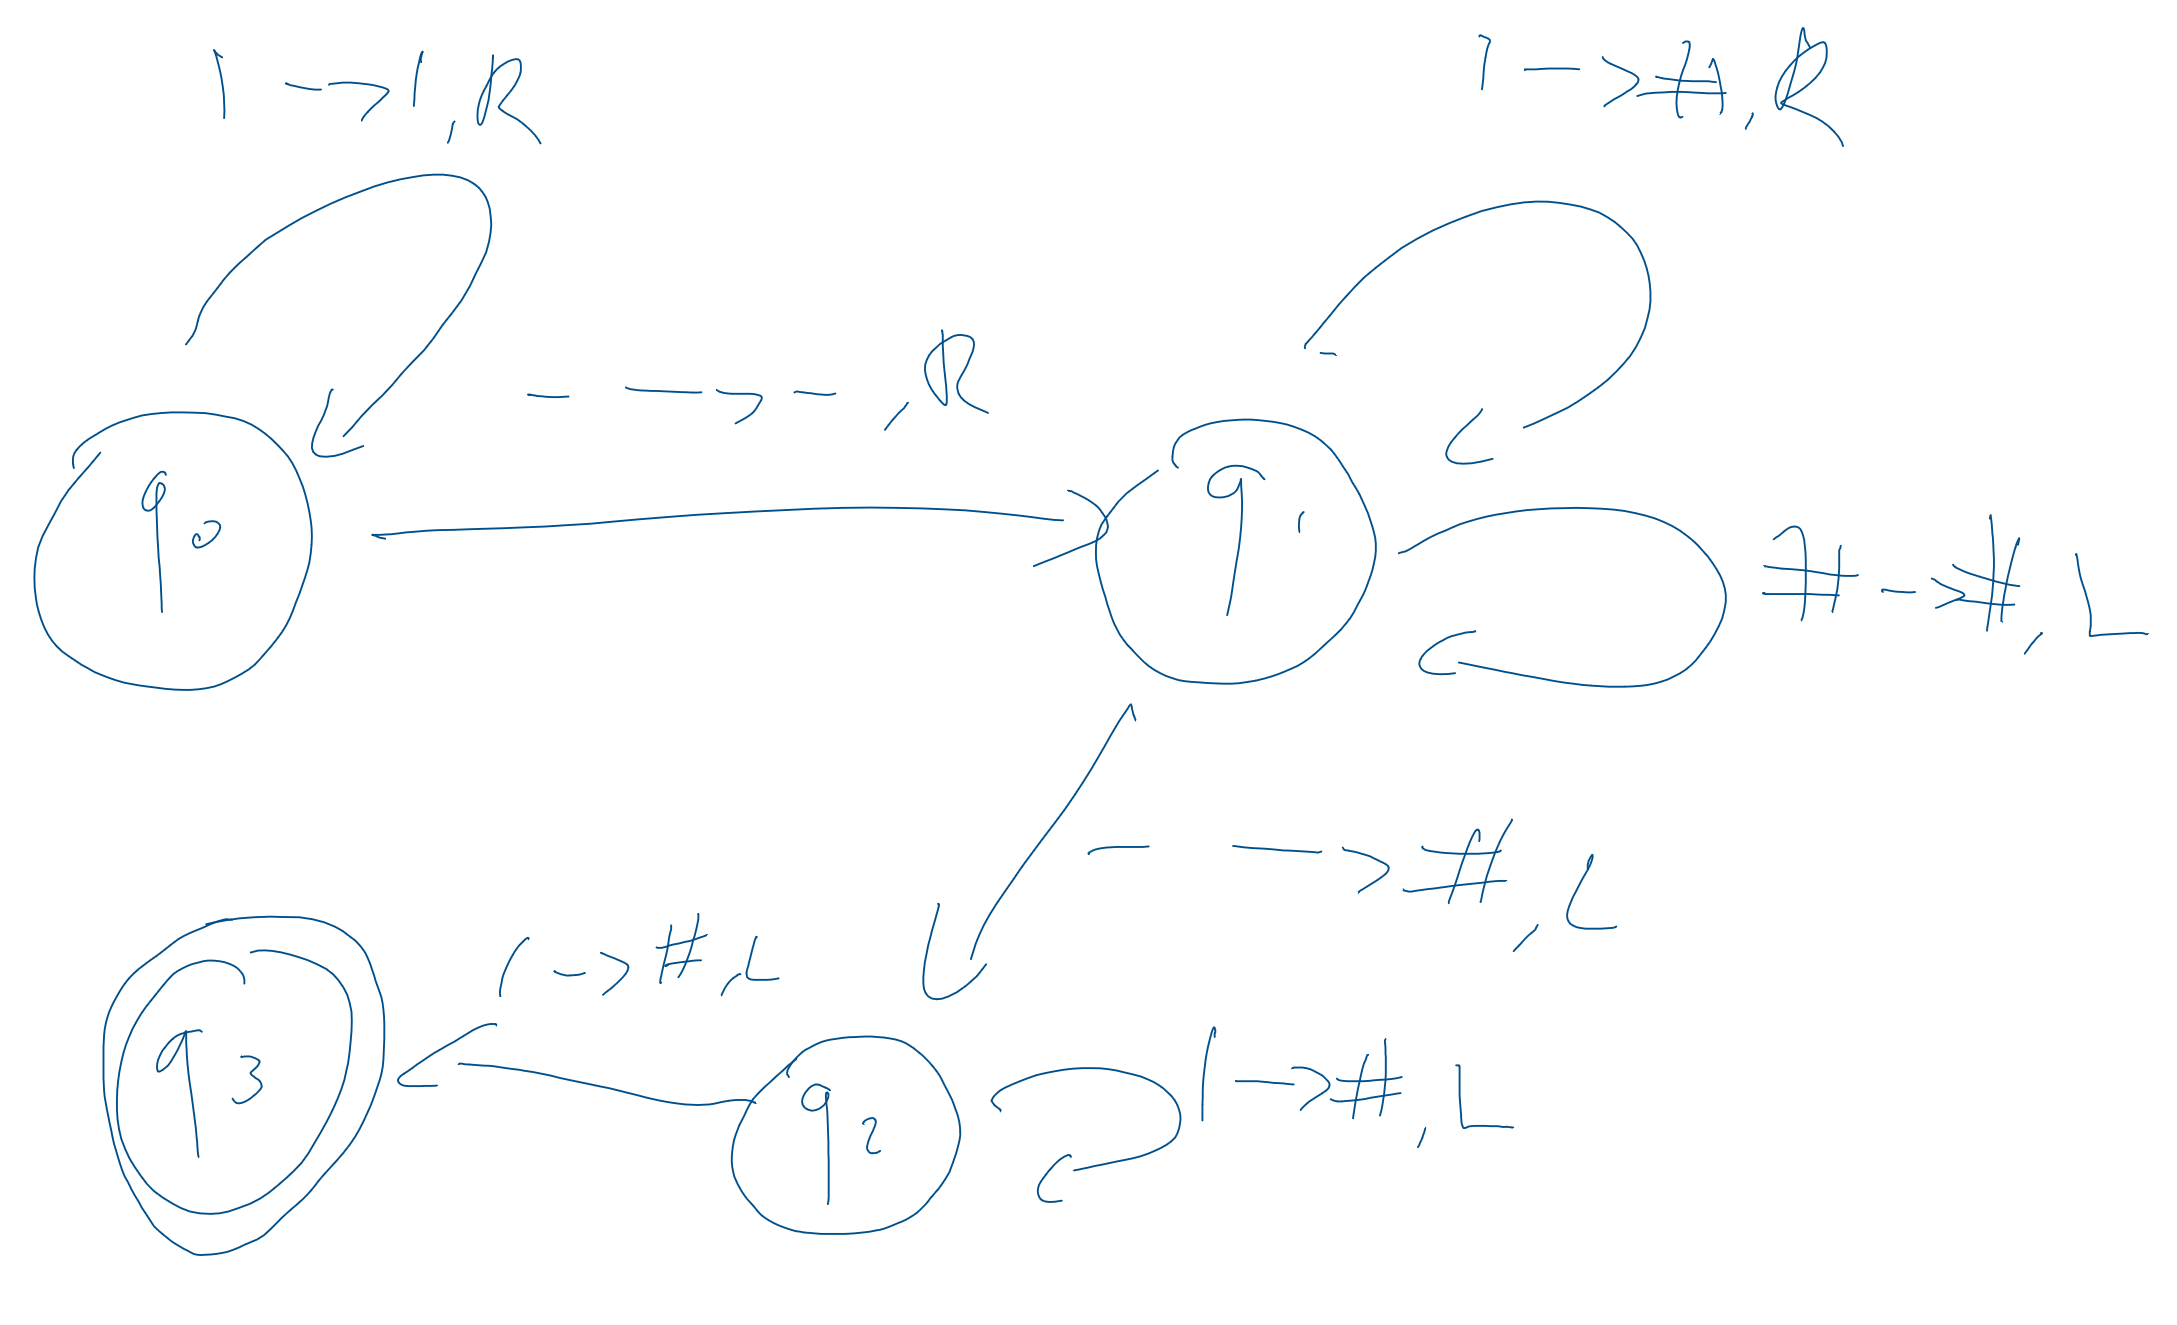 1 -> 1, R
1 -> #, R
- -> -, R
q0
q1
# -> #, L
- -> #, L
1 -> #, L
q3
q2
1 -> #, L